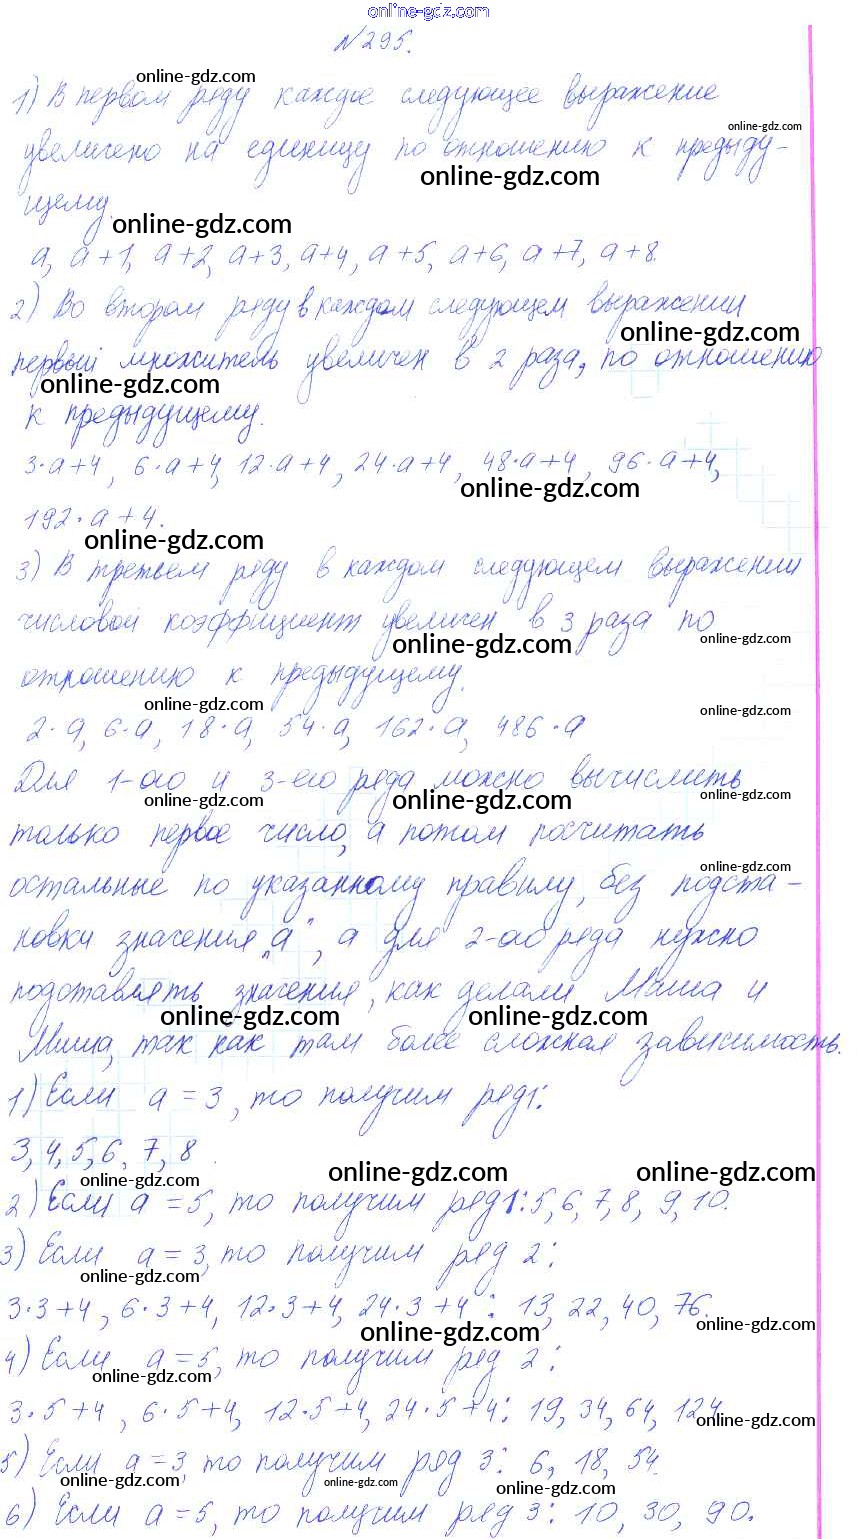 online-gdz.com
№295.
online-gdz.com
1) В первом ряду каждое следующее выражение
online-gdz.com
увеличено на единицу по отношению к предыду-
online-gdz.com
щему.
online-gdz.com
a, a+1, a+2, a+3, a+4, a+5, a+6, a+7, a+8.
2) Во втором ряду в каждом следующем выражении
online-gdz.com
первый множитель увеличен в 2 раза, по отношению
online-gdz.com
к предыдущему.
3·a+4, 6·a+4, 12·a+4, 24·a+4, 48·a+4, 96·a+4,
online-gdz.com
192·a+4.
online-gdz.com
3) В третьем ряду в каждом следующем выражении
числовой коэффициент увеличен в 3 раза по
online-gdz.com online-gdz.com
отношению к предыдущему.
online-gdz.com online-gdz.com
2·a, 6·a, 18·a, 54·a, 162·a, 486·a
Для 1-ого и 3-его ряда можно вычислить
online-gdz.com online-gdz.com online-gdz.com
только первое число, а потом посчитать
online-gdz.com
остальные по указанному правилу, без подста-
новки значения „a", а для 2-ого ряда нужно
подставлять значения, как делали Маша и
online-gdz.com online-gdz.com
Миша, так как там более сложная зависимость.
1) Если a=3, то получим ряд 1:
3, 4, 5, 6, 7, 8.
online-gdz.com online-gdz.com online-gdz.com
2) Если a=5, то получим ряд 1: 5, 6, 7, 8, 9, 10.
3) Если a=3, то получим ряд 2:
online-gdz.com
3·3+4, 6·3+4, 12·3+4, 24·3+4: 13, 22, 40, 76.
online-gdz.com online-gdz.com
4) Если a=5, то получим ряд 2:
online-gdz.com
3·5+4, 6·5+4, 12·5+4, 24·5+4: 19, 34, 64, 124
online-gdz.com
5) Если a=3, то получим ряд 3: 6, 18, 54.
online-gdz.com online-gdz.com online-gdz.com
6) Если a=5, то получим ряд 3: 10, 30, 90.